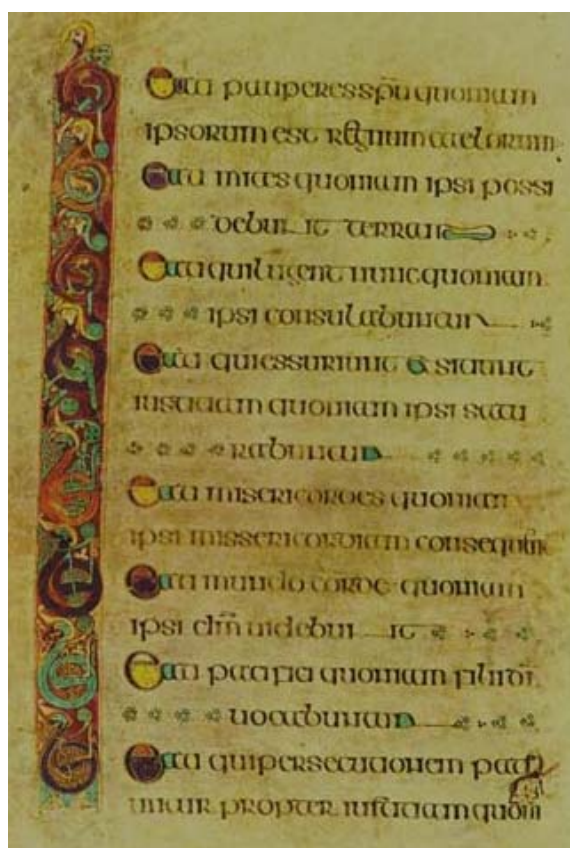 Eati pauperes spu quoniam
ipsorum est regnum caelorum
Eati mites quoniam ipsi possi
debunt terram
Eati qui lugent nunc quoniam
ipsi consulabuntur
Eati qui essuriunt et sitiunt
iustitiam quoniam ipsi satu
rabuntur
Eati misericordes quoniam
ipsi missericordiam consequntr
Eati mundo corde quoniam
ipsi dm uidebunt
Eati pacifici quoniam filii di
uocabuntur
Eati qui persecutionem pati
untur propter iustitiam quoni